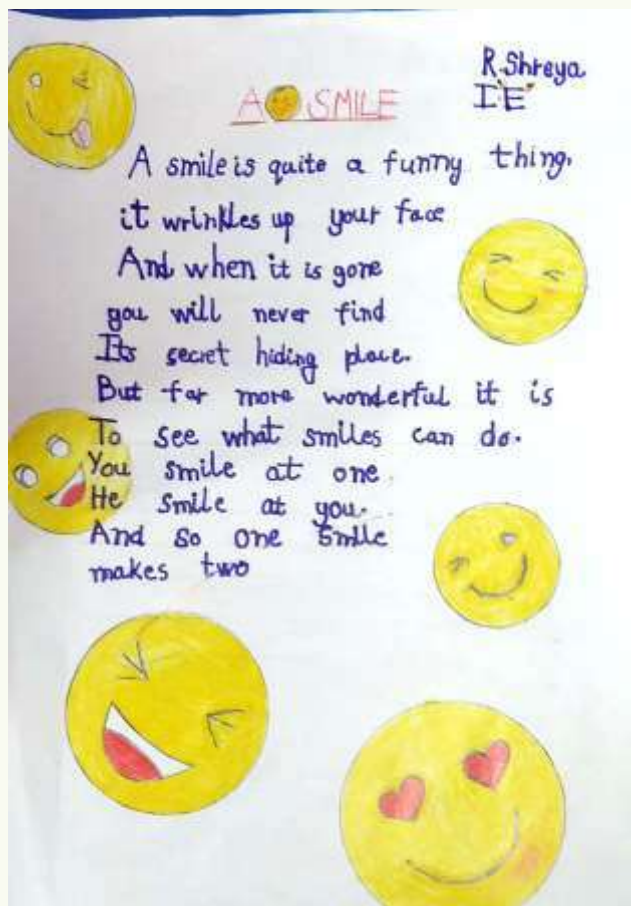 R.Shreya
I 'E'
A SMILE
A smile is quite a funny thing,
it wrinkles up your face
And when it is gone
you will never find
Its secret hiding place.
But far more wonderful it is
To see what smiles can do.
You smile at one.
He smile at you.
And so one smile
makes two